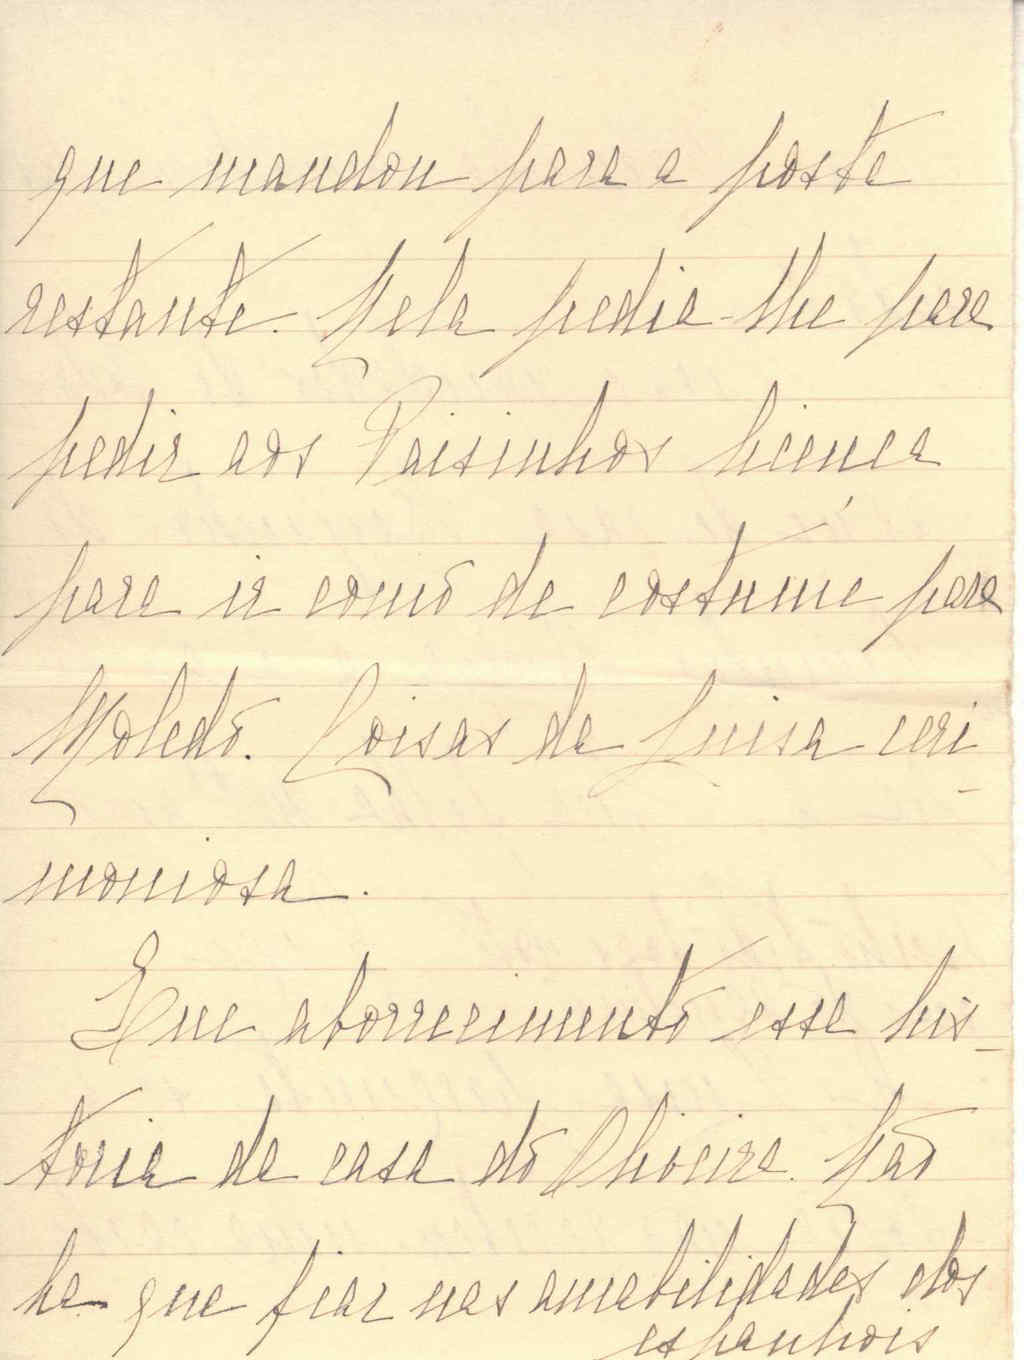 que mandou para a posta
restante. Nela pedia-lhe para
pedir aos Paisinhos licença
para ir como de costume para
Moledo. Coisas da Luisa ceri-
moniosa.
Que aborrecimento essa his-
toria da casa do Oliveira. Não
ha que fiar nas amabilidades dos
espanhois